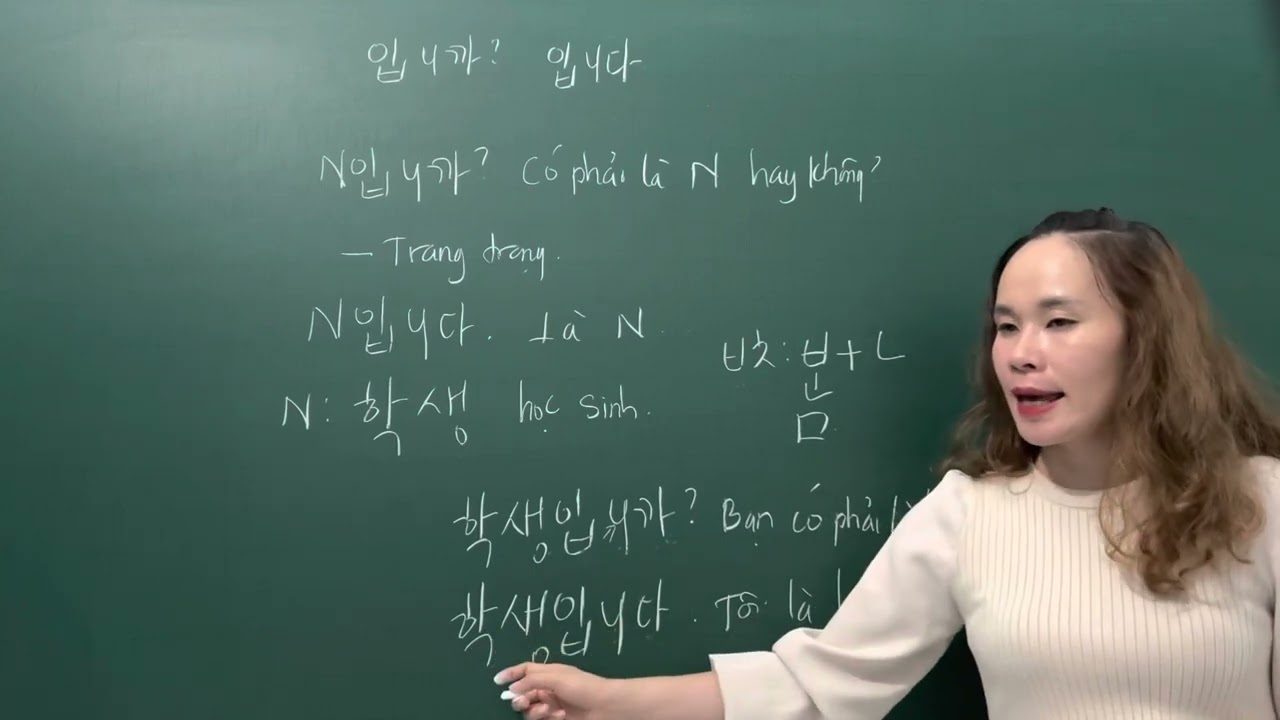 입니까? 입니다
N입니까? Có phải là N hay không?
– Trang trọng.
N입니다. Là N.
ㅂㅊ: ㅂ + ㄴ
ㄴ
ㅁ
N: 학생 học sinh.
학생입니까? Bạn có phải
학생입니다. Tôi là